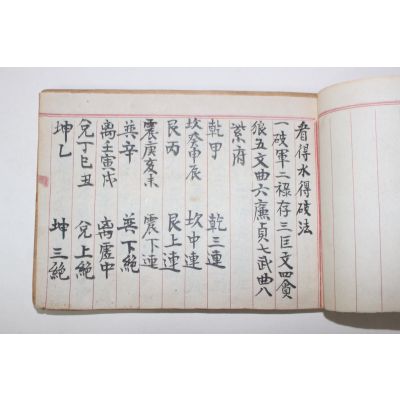 看得水得破法
一破軍二祿存三巨文四貪
狼五文曲六廉貞七武曲八
紫府
乾甲 乾三連
坎癸申辰 坎中連
艮丙 艮上連
震庚亥未 震下連
巽辛 巽下絶
离壬寅戌 离虛中
兌丁巳丑 兌上絶
坤乙 坤三絶